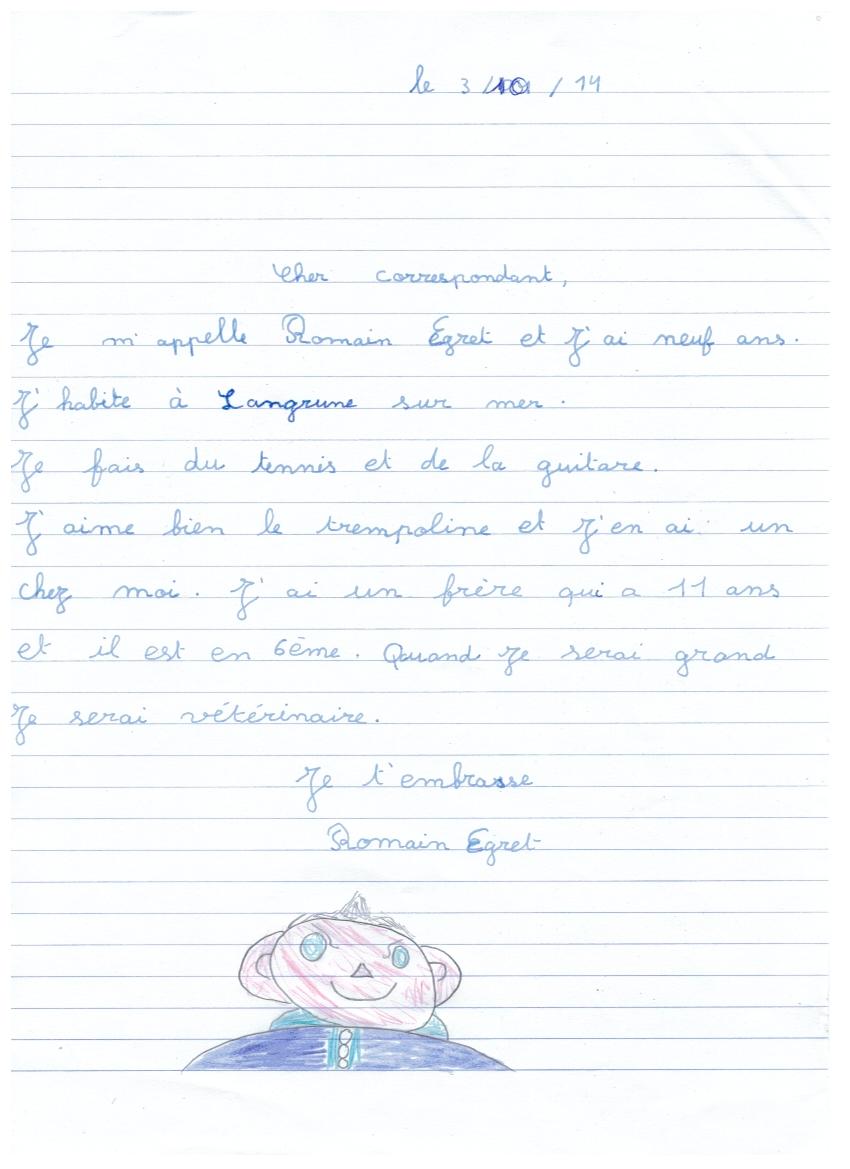 le 3/10/14
Cher correspondant,
Je m'appelle Romain Egret et J'ai neuf ans.
J'habite à Langrune sur mer.
Je fais du tennis et de la guitare.
J'aime bien le trempoline et J'en ai un
chez moi. J'ai un frère qui a 11 ans
et il est en 6ème. Quand Je serai grand
Je serai vétérinaire.
Je t'embrasse
Romain Egret